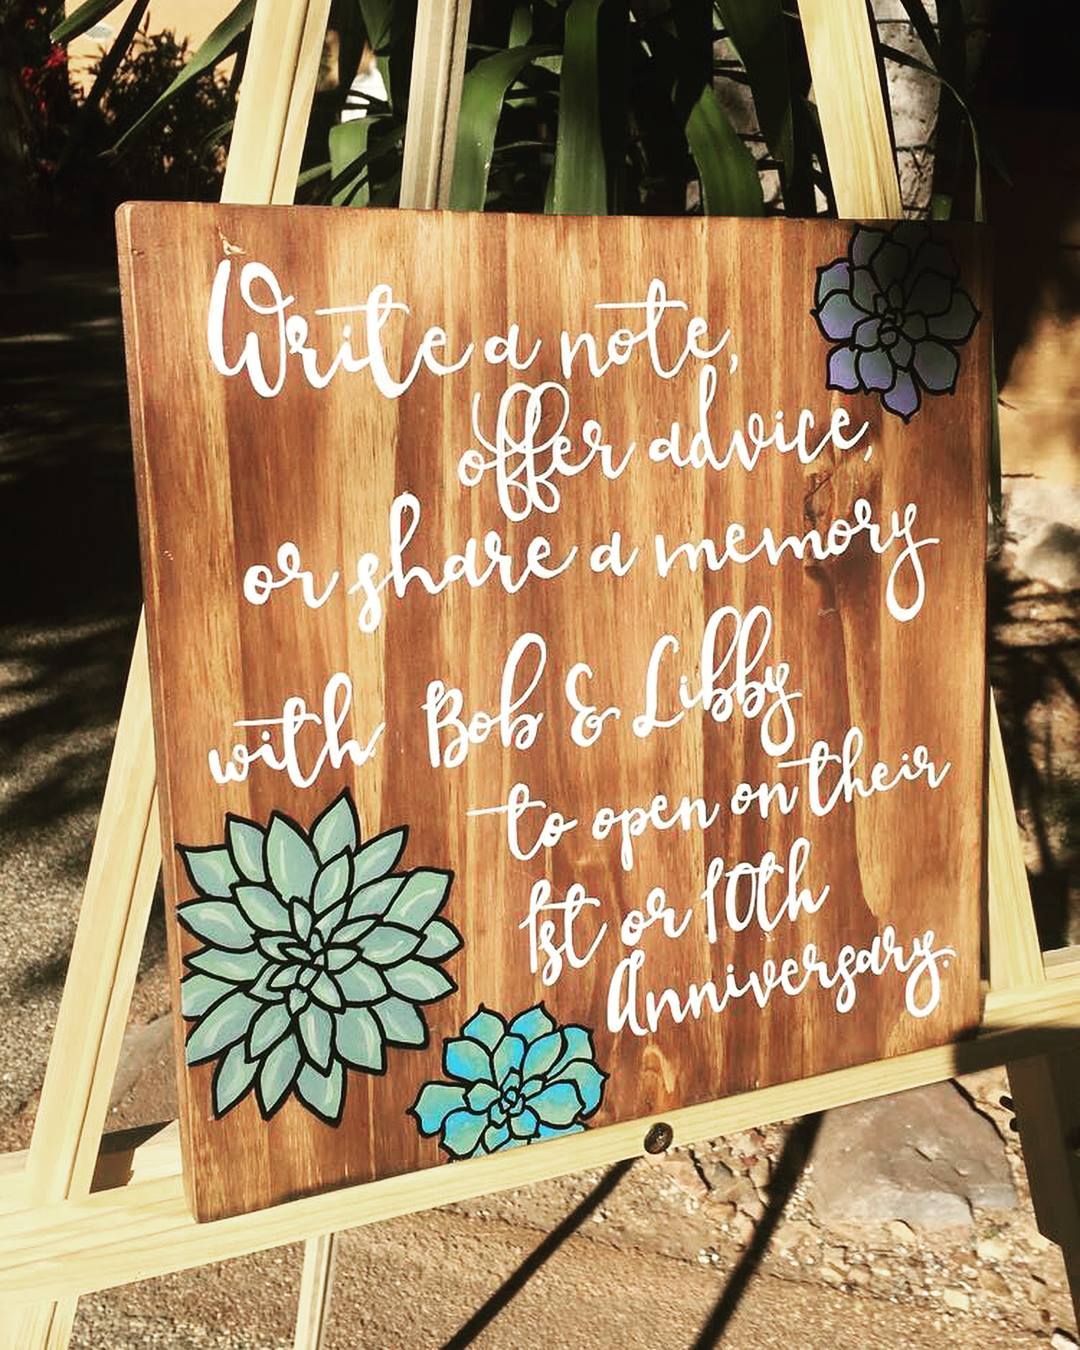 Write a note,
offer advice,
or share a memory
with Bob & Libby
to open on their
1st or 10th
Anniversary.